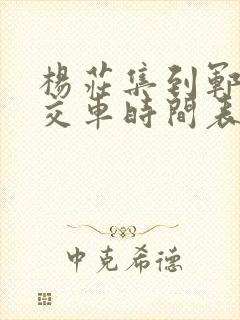 楊莊集到鄆
交車時間表
中克希德